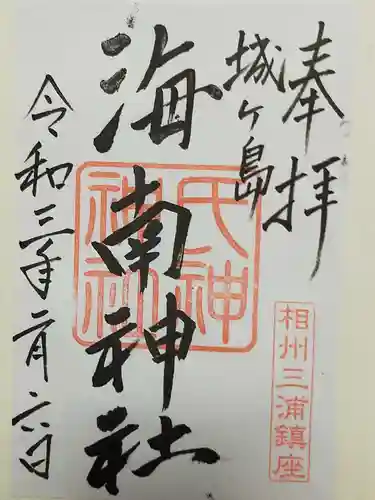 奉拝
城ヶ島
海南神社
令和三年二月六日
相州三浦鎮座